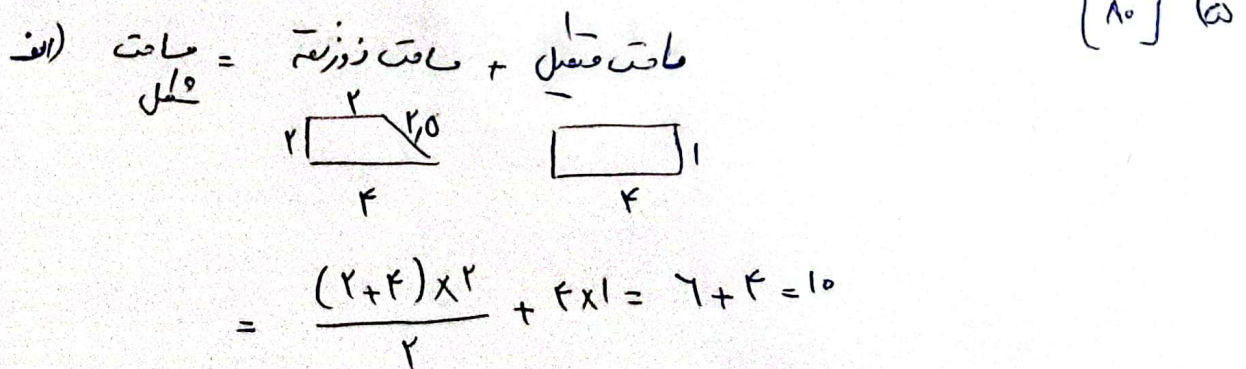 ت) [۸۰]
الف) مساحت شکل = مساحت ذوزنقه + مساحت مستطیل
۲ ۲ ۲,۵ ۴
۱ ۴
= (۲+۴)×۲ / ۲ + ۴×۱ = ۶+۴ = ۱۰